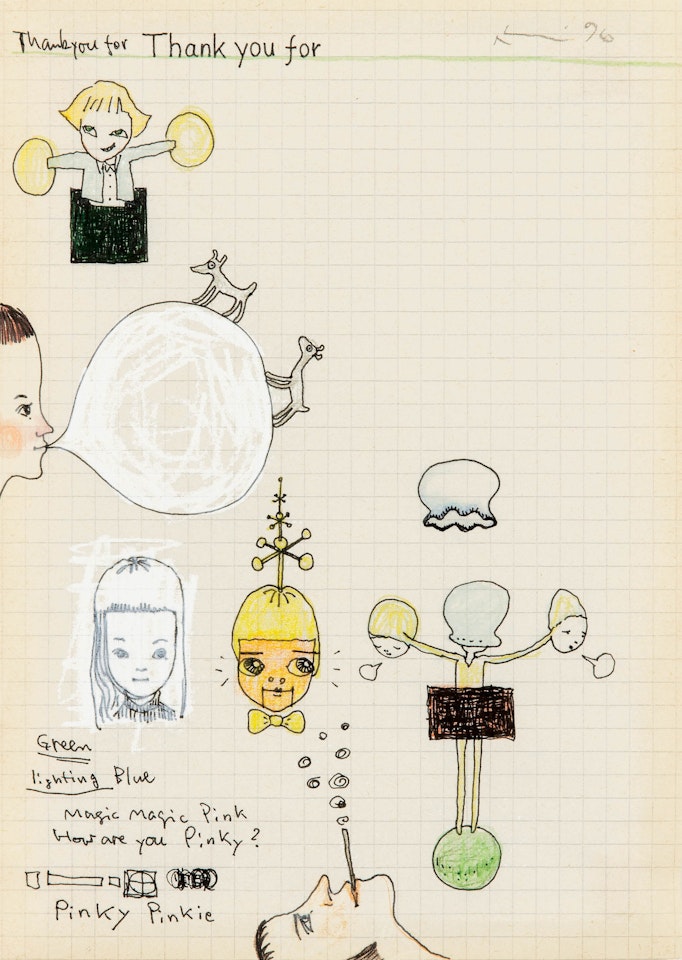 Thankyou for Thank you for
96
Green
lighting Blue
Magic Magic Pink
How are you Pinky?
Pinky Pinkie